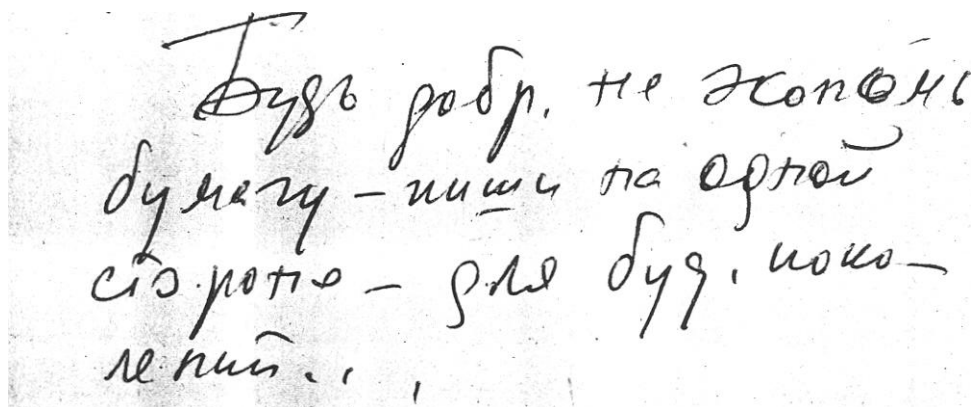 Будь добр. не экономь
бумагу – пиши на одной
стороне – для буд. поко–
лений...